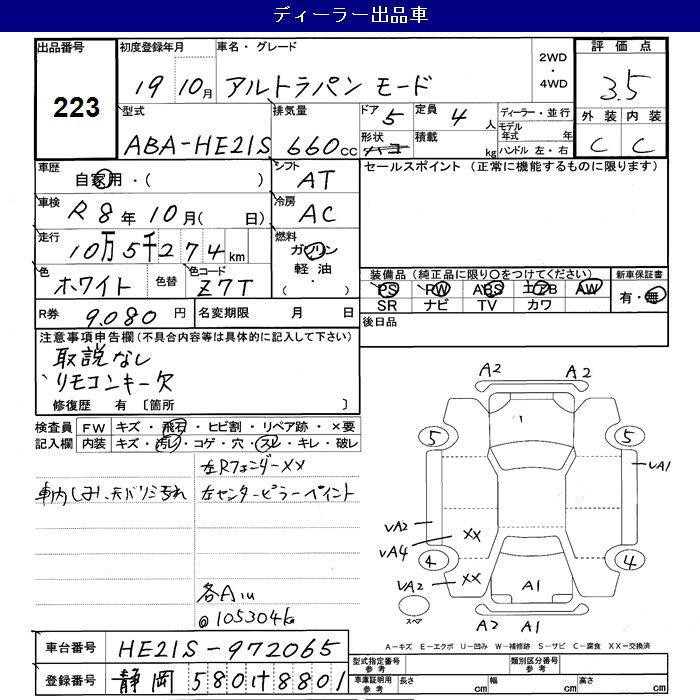 ディーラー出品車
出品番号 初度登録年月 車名・グレード 評価点
223
19 10月 アルトラパン モード 2WD ・ 4WD 3.5
型式 排気量 ドア 定員 ディーラー・並行 外装 内装
ABA-HE21S 660cc 5 4人 モデル年式 年 C C
形状 ハコ 積載 kg ハンドル 左・右
車歴 自家用・( ) シフト AT セールスポイント(正常に機能するものに限ります)
車検 R8年10月( 日) 冷房 AC
走行 10万5千274km 燃料 ガソリン 軽油 ・( )
色 ホワイト 色替 色コード Z7T
装備品(純正品に限り○をつけてください) 新車保証書
PS PW ABS エアB AW 有・無
SR ナビ TV カワ
R券 9,080円 名変期限 月 日 後日品
注意事項申告欄(不具合内容等は具体的に記入して下さい)
取説なし
リモコンキー欠
修復歴 有 〔箇所 〕
検査員記入欄 FW キズ・飛石・ヒビ割・リペア跡・×要
内装 キズ・汚レ・コゲ・穴・スレ・キレ・破レ
左Rフェンダーxx
車内しみ、天バリ汚れ 左センターピラーペイント
各A1U
@105304k
A2 A2
5 5
vA1
vA2 XX
vA4
4 4
vA2 XX
A1
スペア
A2 A1
A-キズ E-エクボ U-凹み W-補修跡 S-サビ C-腐食 XX-交換済
車台番号 HE21S-972065
登録番号 静岡 580 け 8801
型式指定番号 参考 類別区分番号 参考
車庫証明用 参考 長さ cm 幅 cm 高さ cm